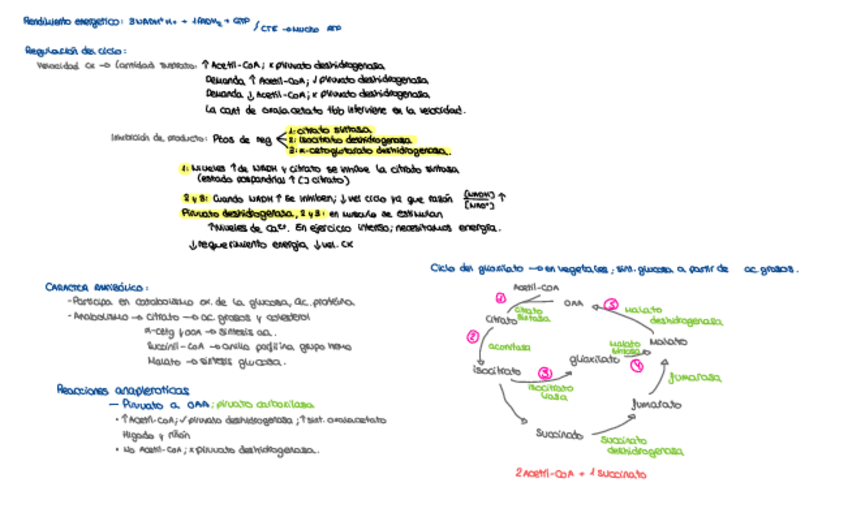 Rendimiento energético: 3NADH+H+ + 1FADH2 + GTP / CTE → mucho ATP
Regulación del ciclo:
Velocidad CK → Cantidad sustrato: ↑ Acetil-CoA; x piruvato deshidrogenasa
Demanda ↑ Acetil-CoA; ✓ piruvato deshidrogenasa
Demanda ↓ Acetil-CoA; x piruvato deshidrogenasa
La cant de oxalacetato tbb interviene en la velocidad.
Inhibición de producto: Ptos de reg
1: citrato sintasa
2: isocitrato deshidrogenasa
3: α-cetoglutarato deshidrogenasa.
1: Niveles ↑ de NADH y citrato se inhibe la citrato sintasa
(estado ↑ [] citrato)
2 y 3: Cuando NADH ↑ se inhiben; ↓ vel ciclo ya que razón [NADH]/[NAD+] ↑
Piruvato deshidrogenasa, 2 y 3: en músculo se estimulan
↑ Niveles de Ca2+. En ejercicio intenso; necesitamos energía.
↓ requerimiento energía ↓ vel. CK
CARÁCTER ANFIBÓLICO:
- Participa en catabolismo ox. de la glucosa, ac. proteína
- Anabolismo → citrato → ac grasos y colesterol
α-cetg y OAA → síntesis aa.
Succinil-CoA → anillo porfirina grupo hemo
Malato → síntesis glucosa.
Reacciones anapleróticas
— Piruvato a OAA: piruvato carboxilasa
· ↑ Acetil-CoA; ✓ piruvato deshidrogenasa; ↑ sint. oxalacetato
Hígado y riñón
· No Acetil-CoA; x piruvato deshidrogenasa.
Ciclo del glioxilato → en vegetales; sint. glucosa a partir de ac. grasos.
Acetil-CoA
1
OAA
5
Malato deshidrogenasa
citrato
citrato sintasa
2
aconitasa
Malato
malato sintasa
4
glioxilato
isocitrato
3
isocitrato liasa
fumarasa
fumarato
Succinato
succinato deshidrogenasa
2 Acetil-CoA = 1 succinato